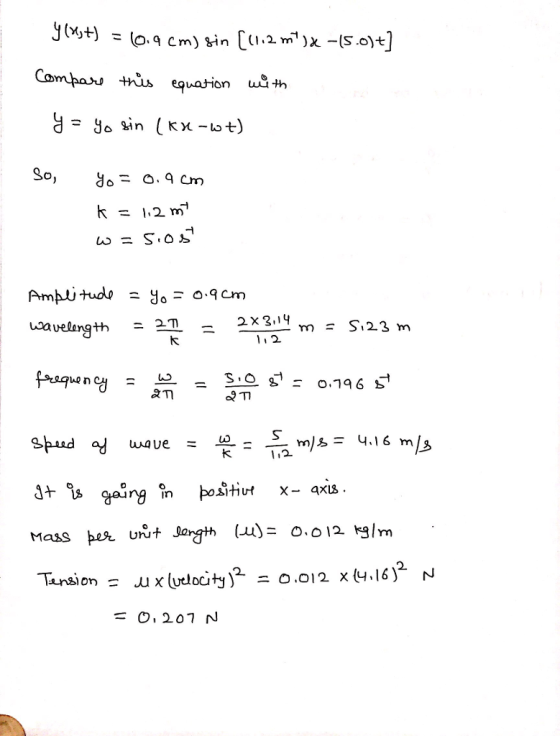 y(x,t) = (0.9 cm) sin [(1.2 m⁻¹)x -(5.0)t]
Compare this equation with
y = y₀ sin (kx-ωt)
So, y₀ = 0.9 cm
k = 1.2 m⁻¹
ω = 5.0 s⁻¹
Amplitude = y₀ = 0.9 cm
wavelength = 2π/k = 2×3.14/1.2 m = 5.23 m
frequency = ω/2π = 5.0/2π s⁻¹ = 0.796 s⁻¹
Speed of wave = ω/k = 5/1.2 m/s = 4.16 m/s
It is going in positive x- axis.
Mass per unit length (μ) = 0.012 kg/m
Tension = μ×(velocity)² = 0.012 ×(4.16)² N
= 0.207 N